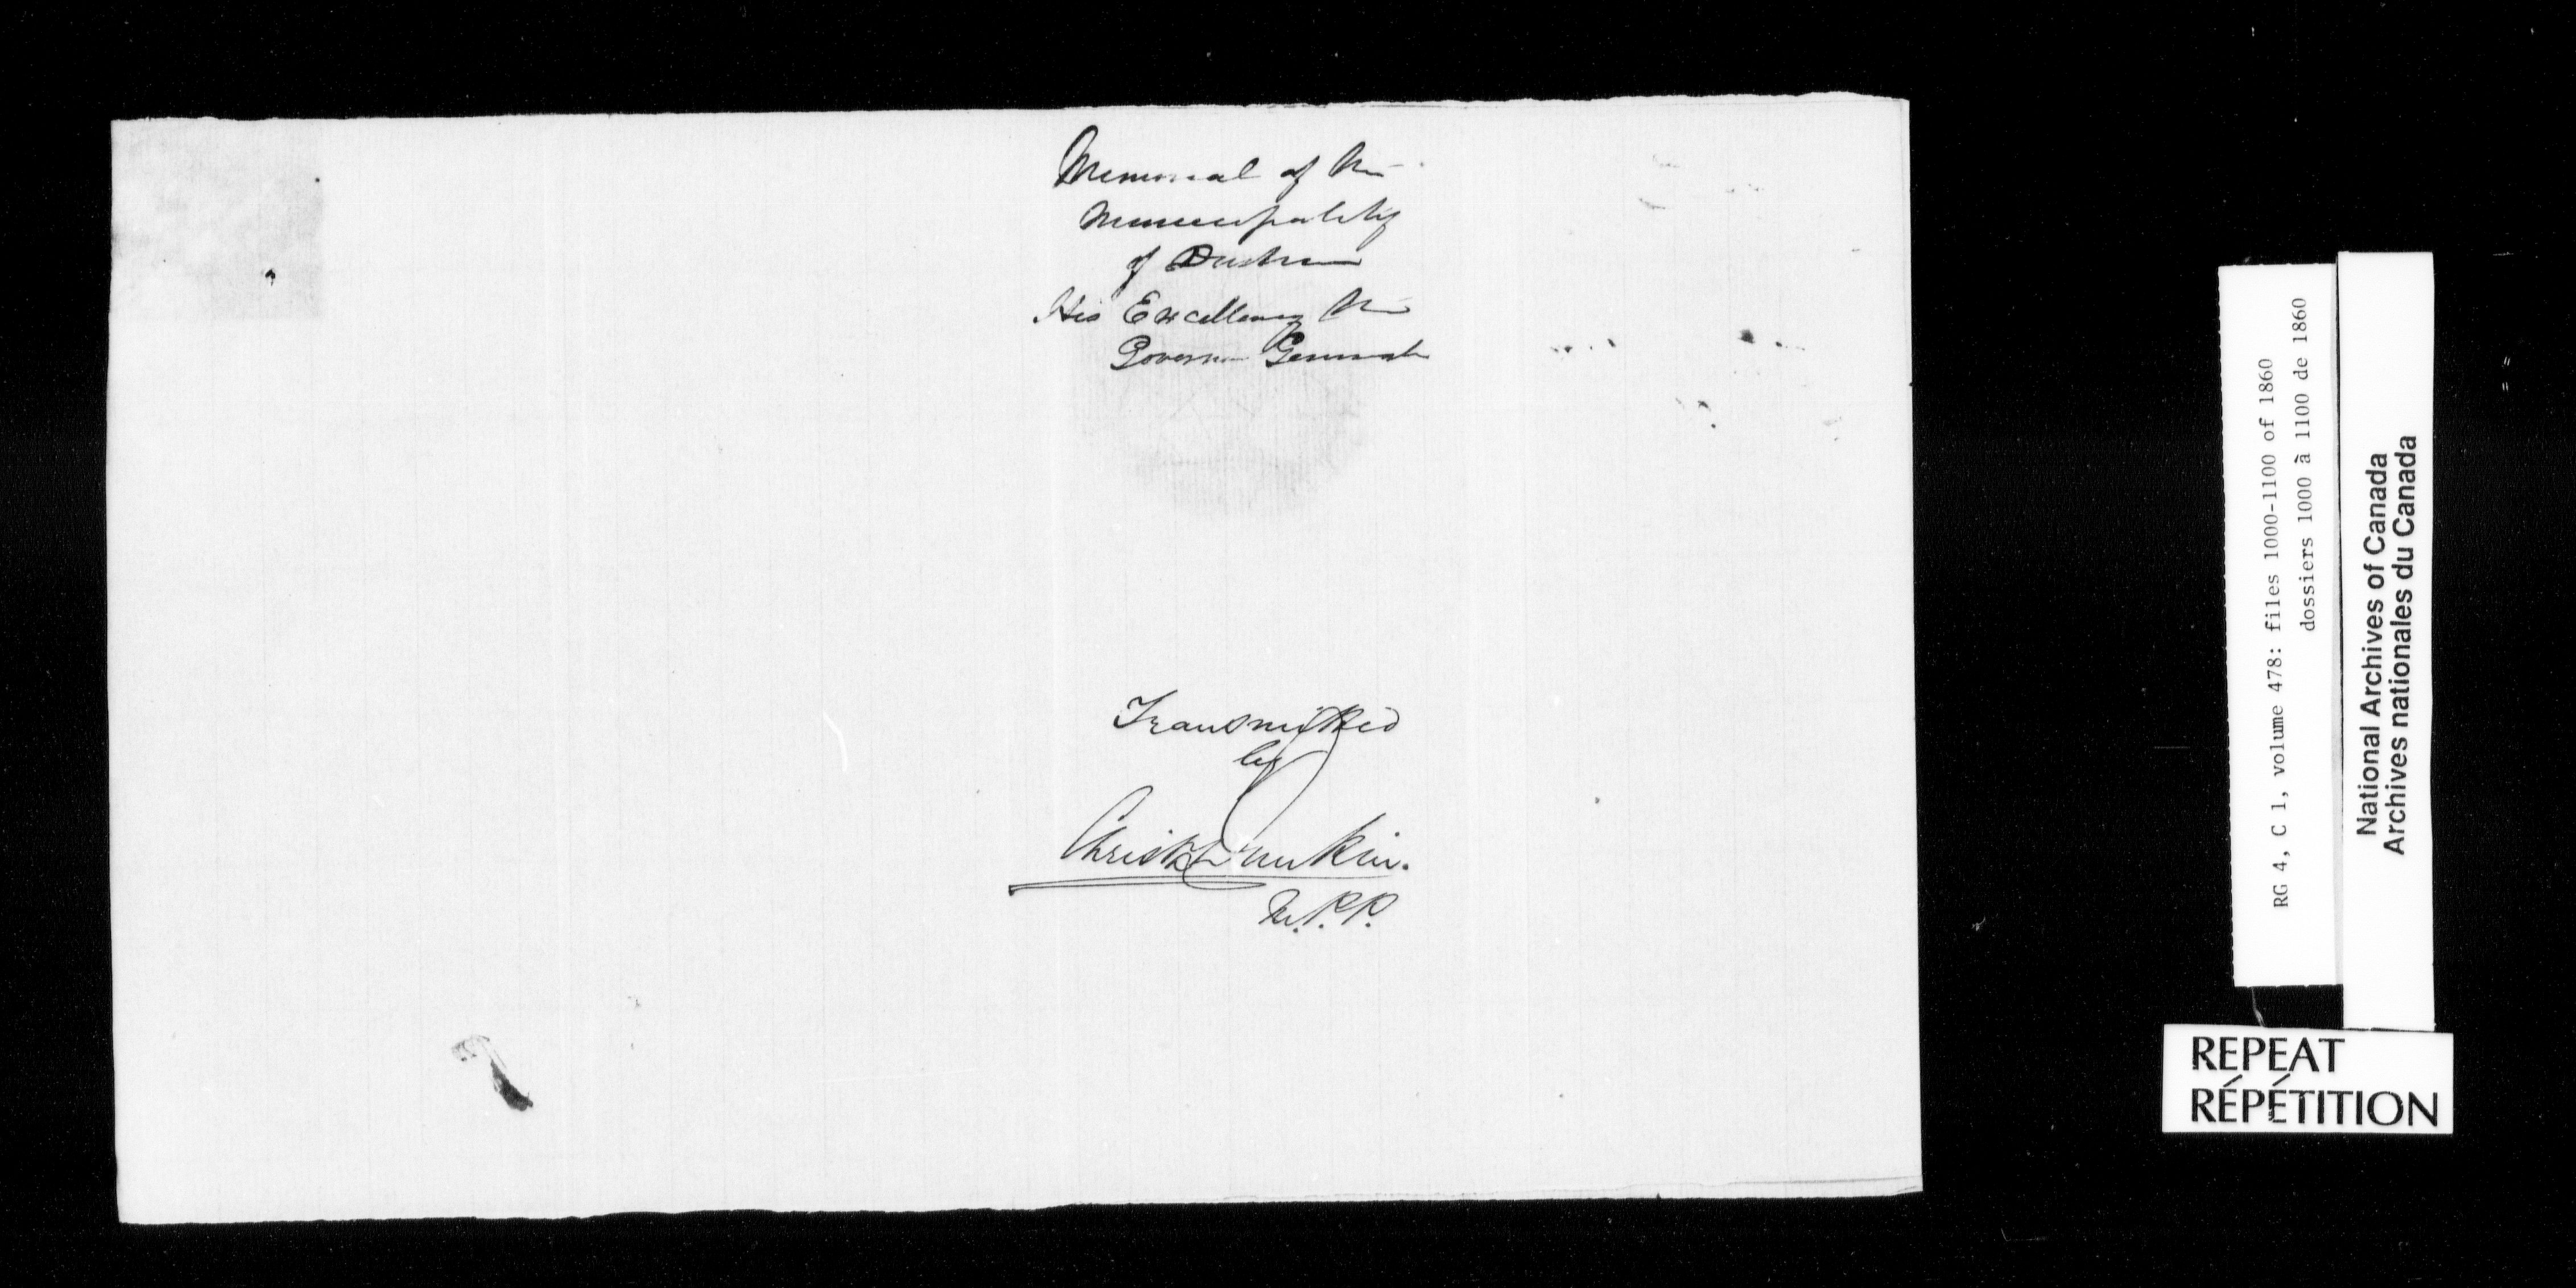 Memorial of the
Municipality
of
His Excellency the
Governor General
Transmitted
by
Christ. Dunkin.
M.P.P.
RG 4, C 1, volume 478: files 1000-1100 of 1860
dossiers 1000 à 1100 de 1860
National Archives of Canada
Archives nationales du Canada
REPEAT
RÉPÉTITION